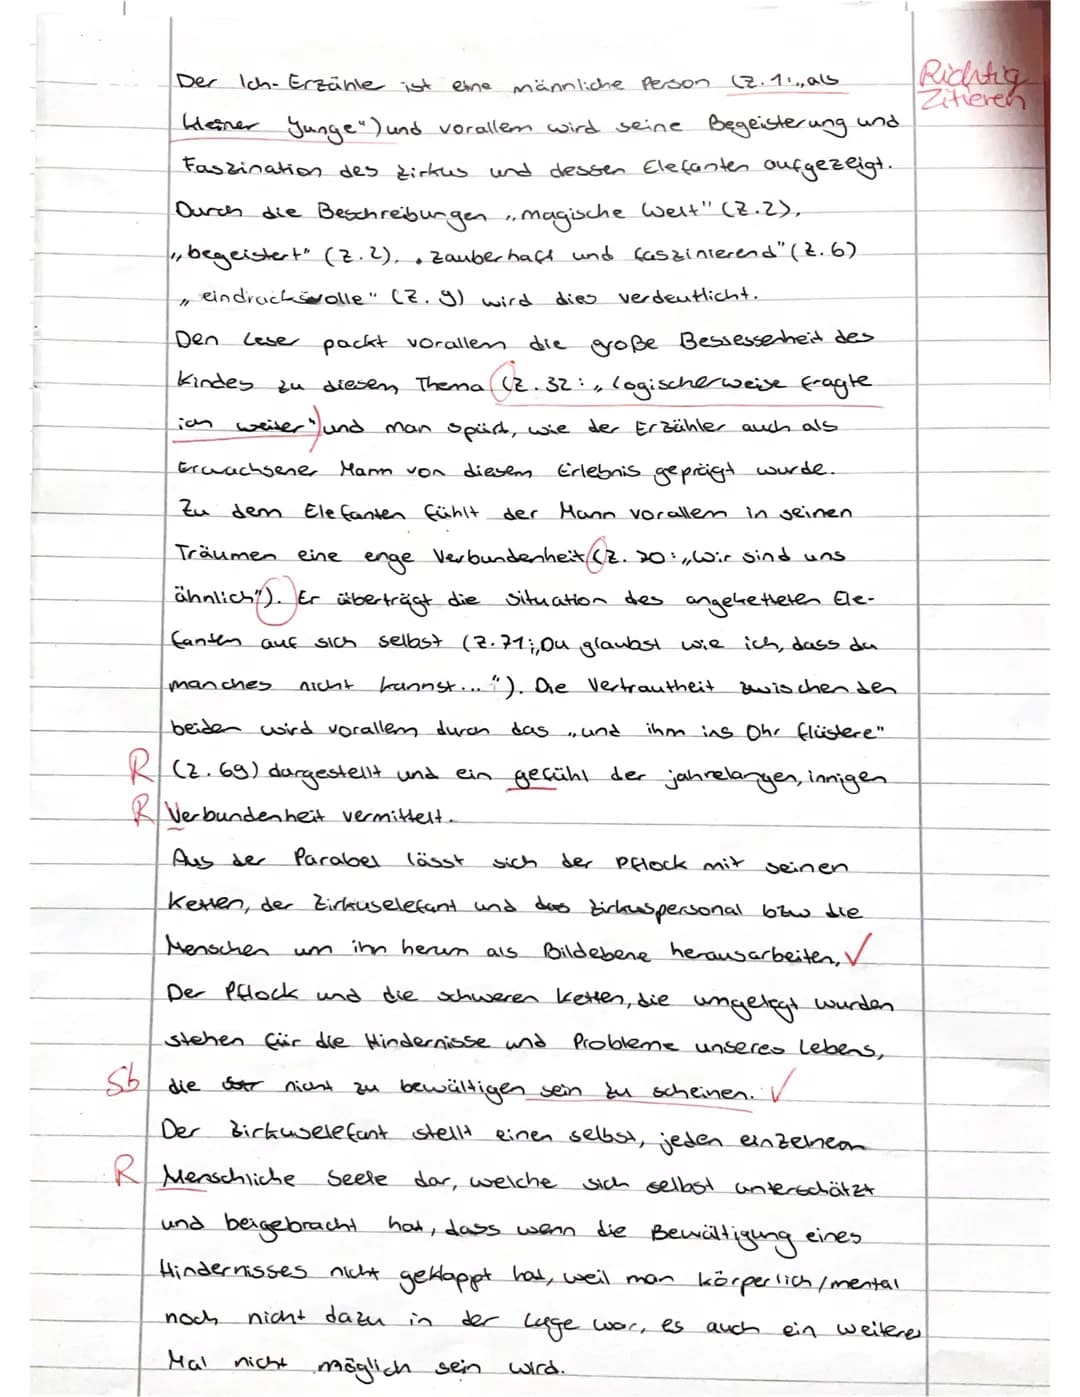 Der Ich-Erzähle ist eine männliche Person (Z.1:„als
Richtig
Zitieren
kleiner Junge") und vorallem wird seine Begeisterung und
Faszination des Zirkus und dessen Elefanten aufgezeigt.
Durch die Beschreibungen „magische Welt" (Z.2),
„begeistert" (Z.2), „zauberhaft und faszinierend" (Z.6)
„eindrucksvolle" (Z.9) wird dies verdeutlicht.
Den Leser packt vorallem die große Bessessenheit des
Kindes zu diesem Thema (Z.32: „Logischerweise fragte
ich weiter") und man spürt, wie der Erzähler auch als
Erwachsener Mann von diesem Erlebnis geprägt wurde.
Zu dem Elefanten fühlt der Mann vorallem in seinen
Träumen eine enge Verbundenheit (Z.70:„Wir sind uns
ähnlich"). Er überträgt die Situation des angeketteten Ele-
fanten auf sich selbst (Z.71:„Du glaubst wie ich, dass du
manches nicht kannst..."). Die Vertrautheit zwischen den
beiden wird vorallem durch das „und ihm ins Ohr flüstere"
R (Z.69) dargestellt und ein gefühl der jahrelangen, innigen
R Verbundenheit vermittelt.
Aus der Parabel lässt sich der Pflock mit seinen
Ketten, der Zirkuselefant und das Zirkuspersonal bzw die
Menschen um ihn herum als Bildebene herausarbeiten. ✓
Der Pflock und die schweren Ketten, die umgelegt wurden
stehen für die Hindernisse und Probleme unseres Lebens,
Sb die nicht zu bewältigen sein zu scheinen. ✓
Der Zirkuselefant stellt einen selbst, jeden einzelnen
R Menschliche Seele dar, welche sich selbst unterschätzt
und beigebracht hat, dass wenn die Bewältigung eines
Hindernisses nicht geklappt hat, weil man körperlich/mental
noch nicht dazu in der Lage war, es auch ein weiteres
Mal nicht möglich sein wird.